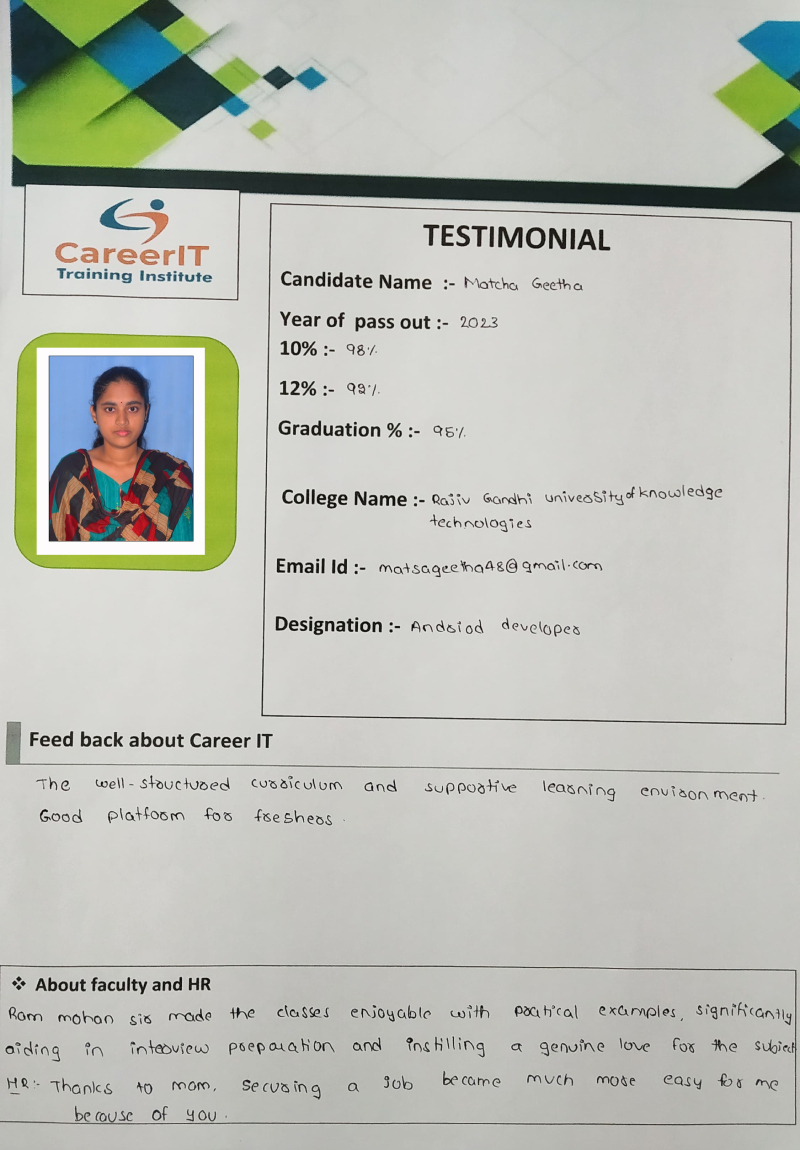 CareerIT
Training Institute
TESTIMONIAL
Candidate Name :- Matcha Geetha
Year of pass out :- 2023
10% :- 98%
12% :- 98%
Graduation % :- 95%
College Name :- Rajiv Gandhi university of knowledge
technologies
Email Id :- matsageetha48@gmail.com
Designation :- Andriod developer
Feed back about Career IT
The well-structured curriculum and supportive learning environment.
Good platform for freshers.
❖ About faculty and HR
Ram mohan sir made the classes enjoyable with practical examples, significantly
aiding in interview preparation and instilling a genuine love for the subject
HR:- Thanks to mam, securing a job became much more easy for me
because of you.